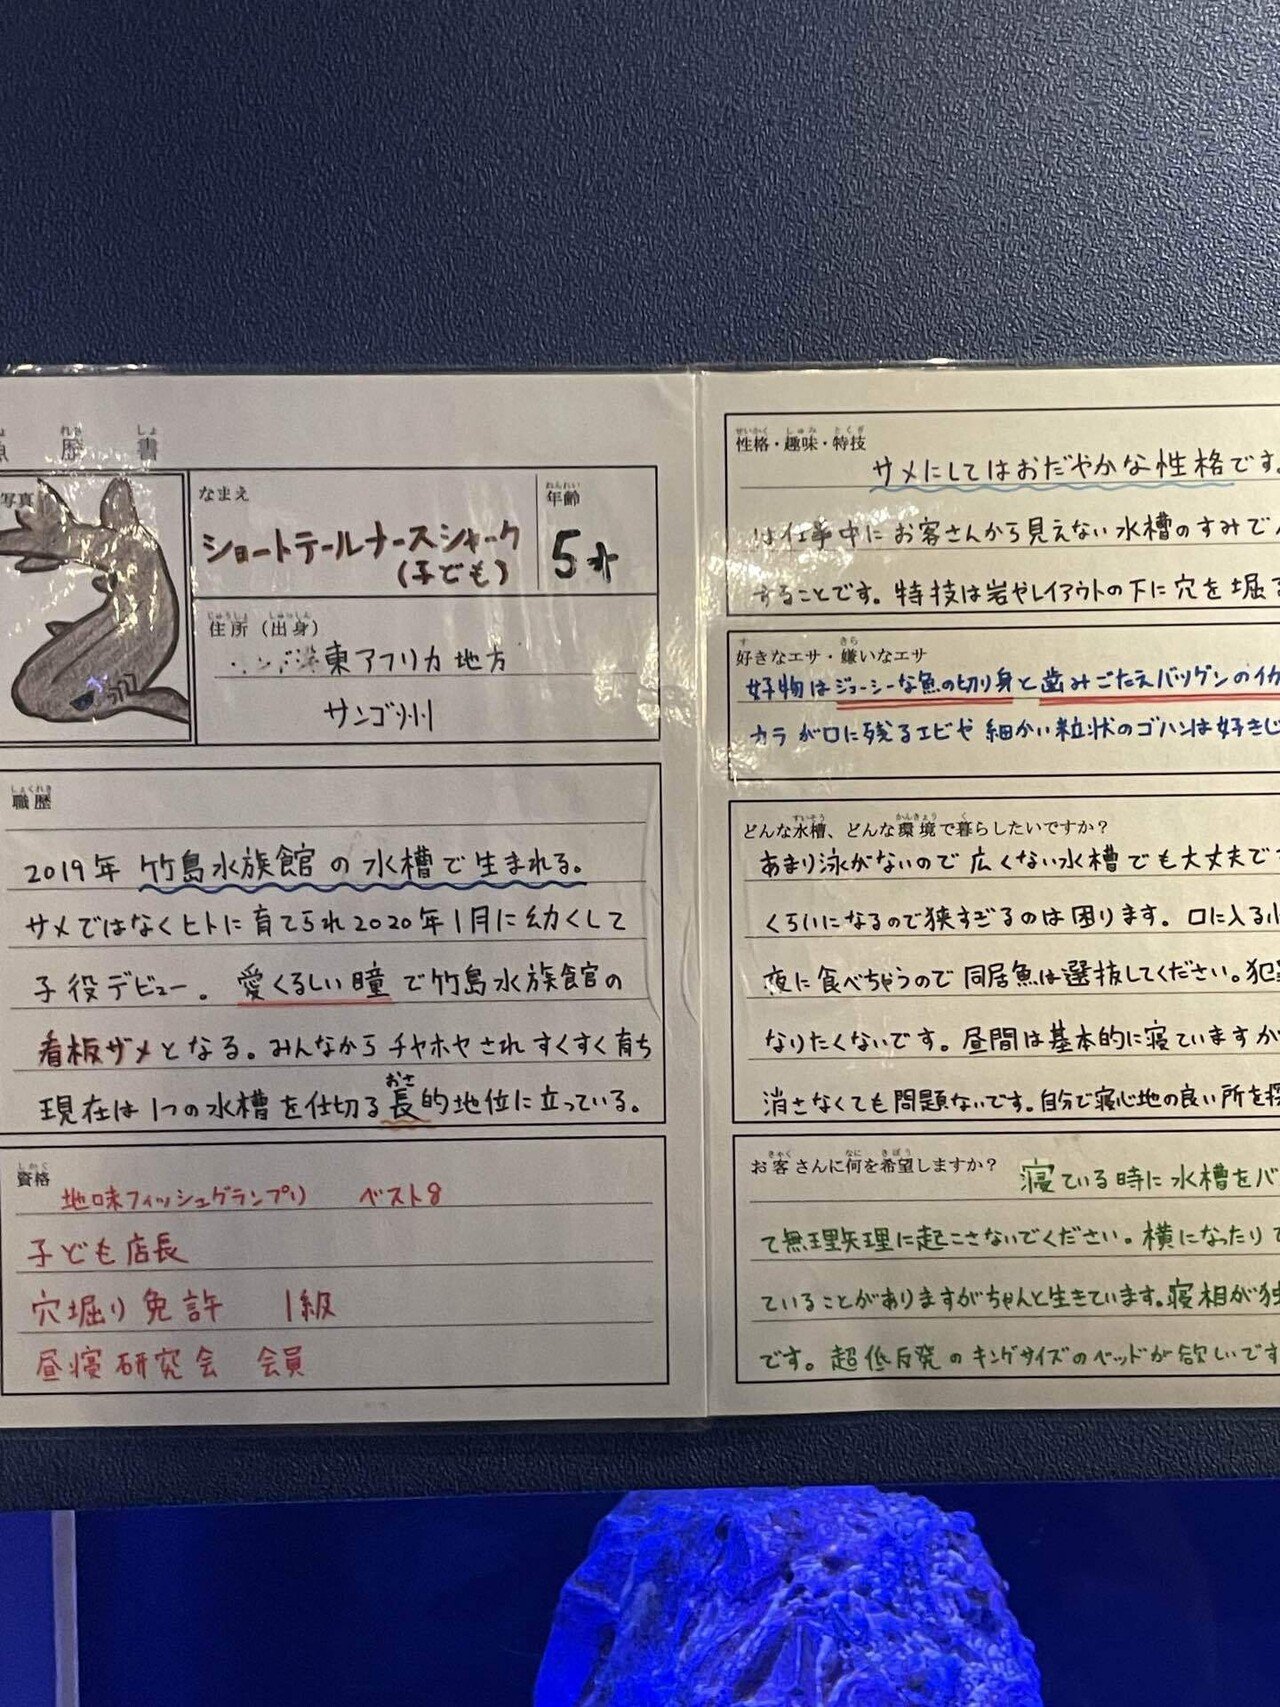 歴書
写真
なまえ
ショートテールナースシャーク
(子ども)
年齢
5才
住所（出身）
東アフリカ地方
サンゴ州
職歴
2019年 竹島水族館の水槽で生まれる。
サメではなくヒトに育てられ2020年1月に幼くして
子役デビュー。愛くるしい瞳で竹島水族館の
看板ザメとなる。みんなからチヤホヤされすくすく育ち
現在は1つの水槽を仕切る長的地位に立っている。
資格
地味フィッシュグランプリ ベスト8
子ども店長
穴堀り免許 1級
昼寝研究会 会員
性格・趣味・特技
サメにしてはおだやかな性格です。
は仕事中にお客さんから見えない水槽のすみで
することです。特技は岩やレイアウトの下に穴を堀
好きなエサ・嫌いなエサ
好物はジューシーな魚の切り身と歯みごたえバツグンのイカ
カラが口に残るエビや細かい粒状のゴハンは好きじ
どんな水槽、どんな環境で暮らしたいですか？
あまり泳がないので広くない水槽でも大丈夫で
くらいになるので狭すぎるのは困ります。口に入る小
夜に食べちゃうので同居魚は選抜してください。犯
なりたくないです。昼間は基本的に寝ていますが
消さなくても問題ないです。自分で寝心地の良い所を探
お客さんに何を希望しますか？
寝ている時に水槽をバ
て無理矢理に起こさないでください。横になったり
ていることがありますがちゃんと生きています。寝相が独
です。超低反発のキングサイズのベッドが欲しいです